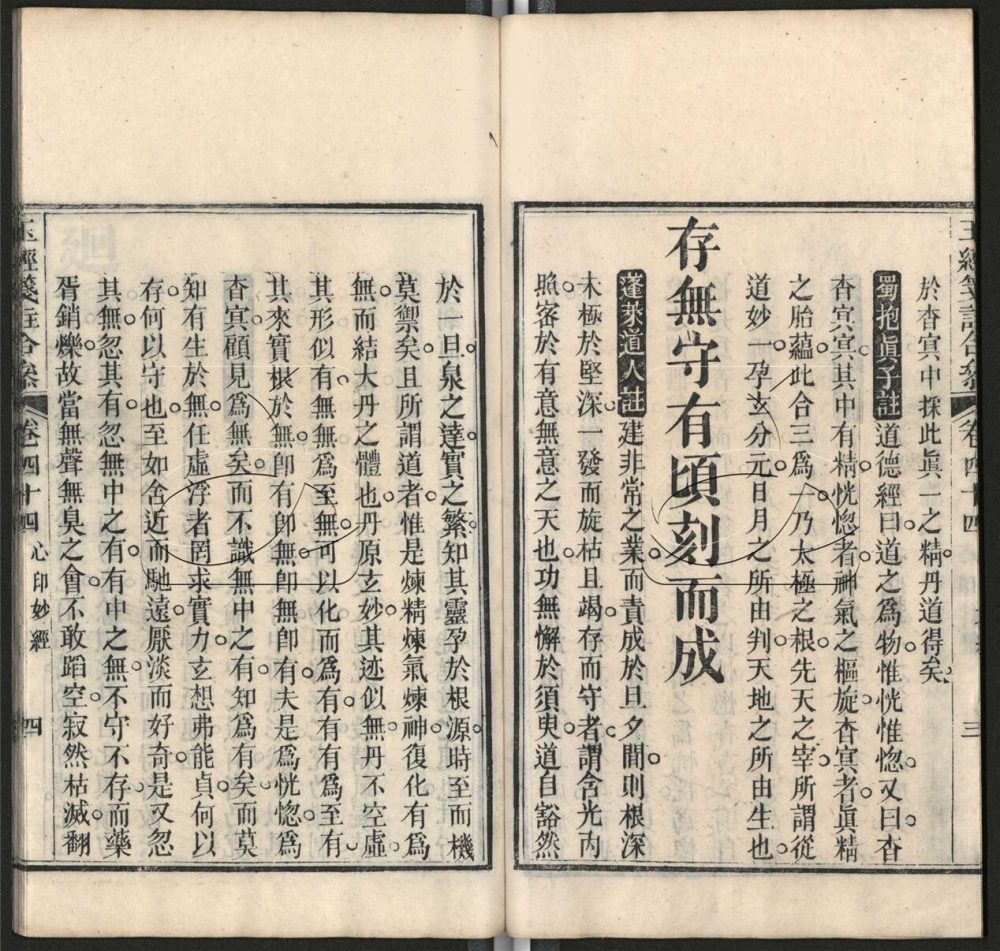 玉經箋註合參 卷四十四 三
於杳冥中採此眞一之精丹道得矣
蜀抱眞子註道德經曰道之爲物惟恍惟惚又曰杳
杳冥冥其中有精恍惚者神氣之樞旋杳冥者眞精
之胎蘊此合三爲一乃太極之根先天之宰所謂從
道妙一孕玄分元日月之所由判天地之所由生也
存無守有頃刻而成
蓬萊道人註建非常之業而責成於旦夕間則根深
未極於堅深一發而旋枯且竭存而守者謂含光內
照密於有意無意之天也功無懈於須臾道自豁然
於一旦泉之達實之繁知其靈孕於根源時至而機
莫禦矣且所謂道者惟是煉精煉氣煉神復化有爲
無而結大丹之體也丹原玄妙其迹似無丹不空虛
其形似有無爲至無可以化而爲有有爲至有
其來實根於無卽有卽無卽無卽有夫是爲恍惚爲
杳冥顧見爲無矣而不識無中之有知爲有矣而莫
知有生於無任虛浮者罔求實力玄想弗能貞何以
存何以守也至如舍近而馳遠厭淡而好奇是又忽
其無忽其有忽無中之有有中之無不守不存而藥
胥銷爍故當無聲無臭之會不敢蹈空寂然枯滅翻
玉經箋註合參 卷四十四 心印妙經 四